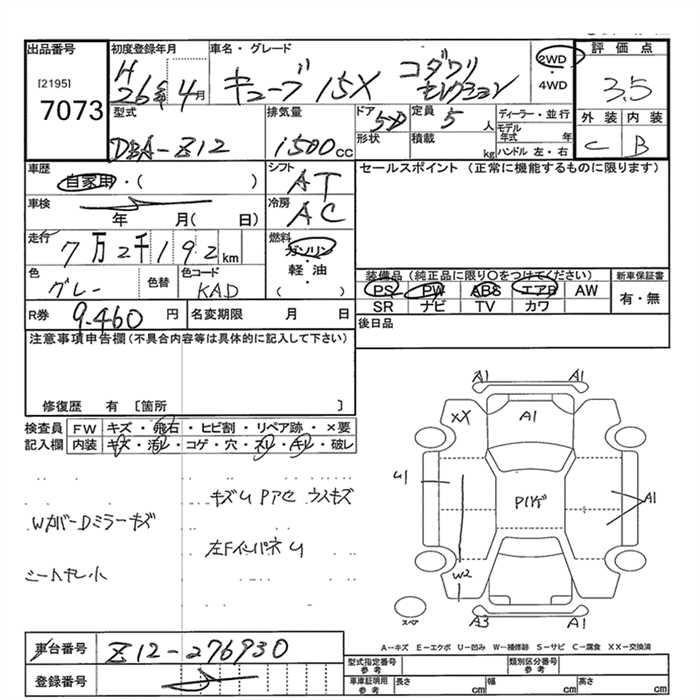 出品番号
[2195]
7073
初度登録年月
H
26年 4月
車名・グレード
キューブ 15X
コダワリ
セレクション
2WD
・
4WD
評価点
3.5
外装 内装
C B
型式
DBA-Z12
排気量
1500cc
ドア
5D
形状
定員
5人
積載
kg
ディーラー・並行
モデル年式 年
ハンドル 左・右
車歴
自家用・( )
シフト
AT
セールスポイント (正常に機能するものに限ります)
車検
年 月( 日)
冷房
AC
走行
7万2千192km
燃料
ガソリン
・
軽油
・
( )
色
グレー
色替
色コード
KAD
装備品 (純正品に限り○をつけてください)
PS PW ABS エアB AW
SR ナビ TV カワ
新車保証書
有・無
R券 9.460 円
名変期限 月 日
後日品
注意事項申告欄(不具合内容等は具体的に記入して下さい)
修復歴 有 [箇所 ]
検査員
記入欄
FW キズ・飛石・ヒビ割・リペア跡・×要
内装 キズ・汚レ・コゲ・穴・スレ・キレ・破レ
キズU Pアセ ウスキズ
WカバーDミラーキズ
左FインパネU
シートヤレ小
A1 A1
XX A1
U1
P1ゲ
A1
W2
スペア
A3 A1
A-キズ E-エクボ U-凹み W-補修跡 S-サビ C-腐食 XX-交換済
車台番号 Z12-276930
登録番号
型式指定番号
参考
類別区分番号
参考
車庫証明用
参考
長さ cm 幅 cm 高さ cm